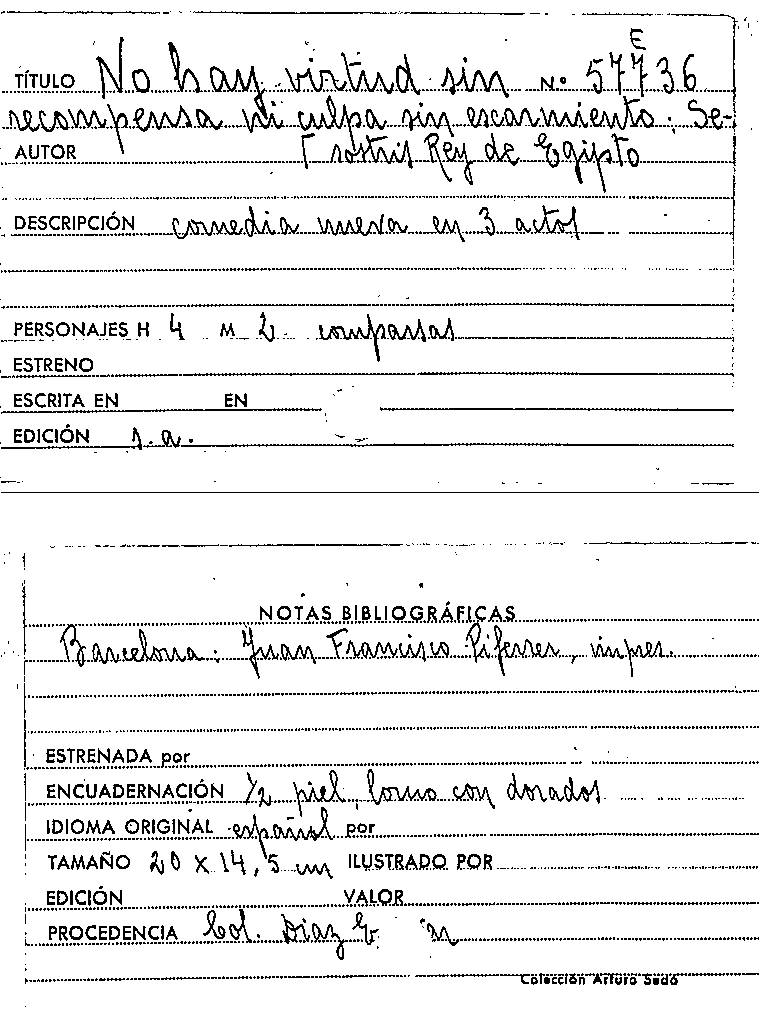 E
TÍTULO No hay virtud sin N.º 57736
recompensa ni culpa sin escarmiento. Se-
AUTOR [sostris Rey de Egipto
DESCRIPCIÓN comedia nueva en 3 actos
PERSONAJES H 4 M 2 comparsas
ESTRENO
ESCRITA EN EN
EDICIÓN s.a.
NOTAS BIBLIOGRÁFICAS
Barcelona: Juan Francisco Piferrer, impres.
ESTRENADA por
ENCUADERNACIÓN 1/2 piel, lomo con dorados
IDIOMA ORIGINAL español por
TAMAÑO 20 X 14,5 cm ILUSTRADO POR
EDICIÓN VALOR
PROCEDENCIA Col. Diaz
Colección Arturo Sedó